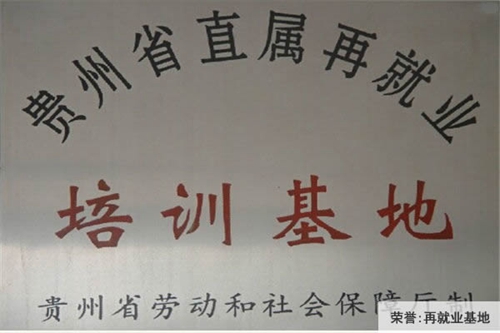 贵州省直属再就业
培训基地
贵州省劳动和社会保障厅制
荣誉:再就业基地